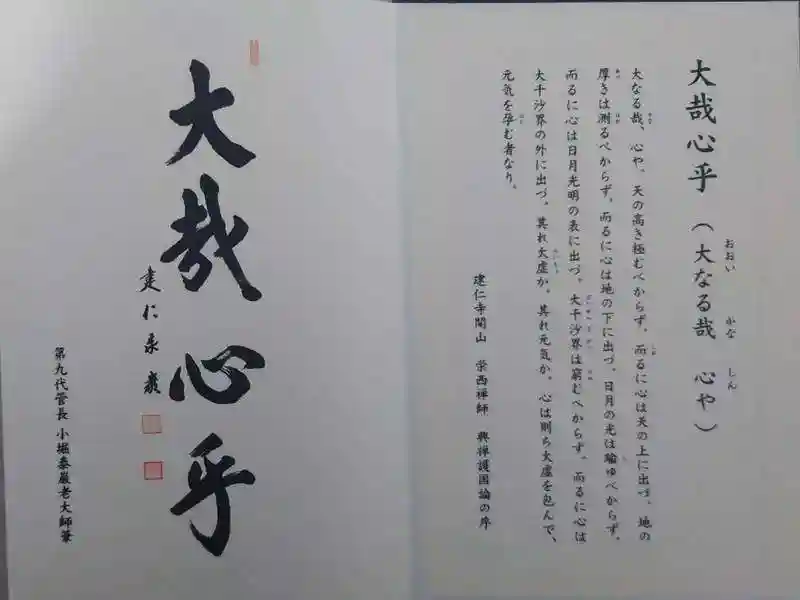 大哉心乎（大なる哉　心や）
おおい　かな　しん
大なる哉、心や、天の高き極むべからず、而るに心は天の上に出づ、地の
厚きは測るべからず、而るに心は地の下に出づ、日月の光は踰ゆべからず、
而るに心は日月光明の表に出づ、大千沙界は窮むべからず、而るに心は
大千沙界の外に出づ、其れ太虚か、其れ元気か、心は則ち太虚を包んで、
元気を孕む者なり。
建仁寺開山　栄西禅師　興禅護国論の序
大哉心乎
建仁泰巌
第九代管長 小堀泰巌老大師筆